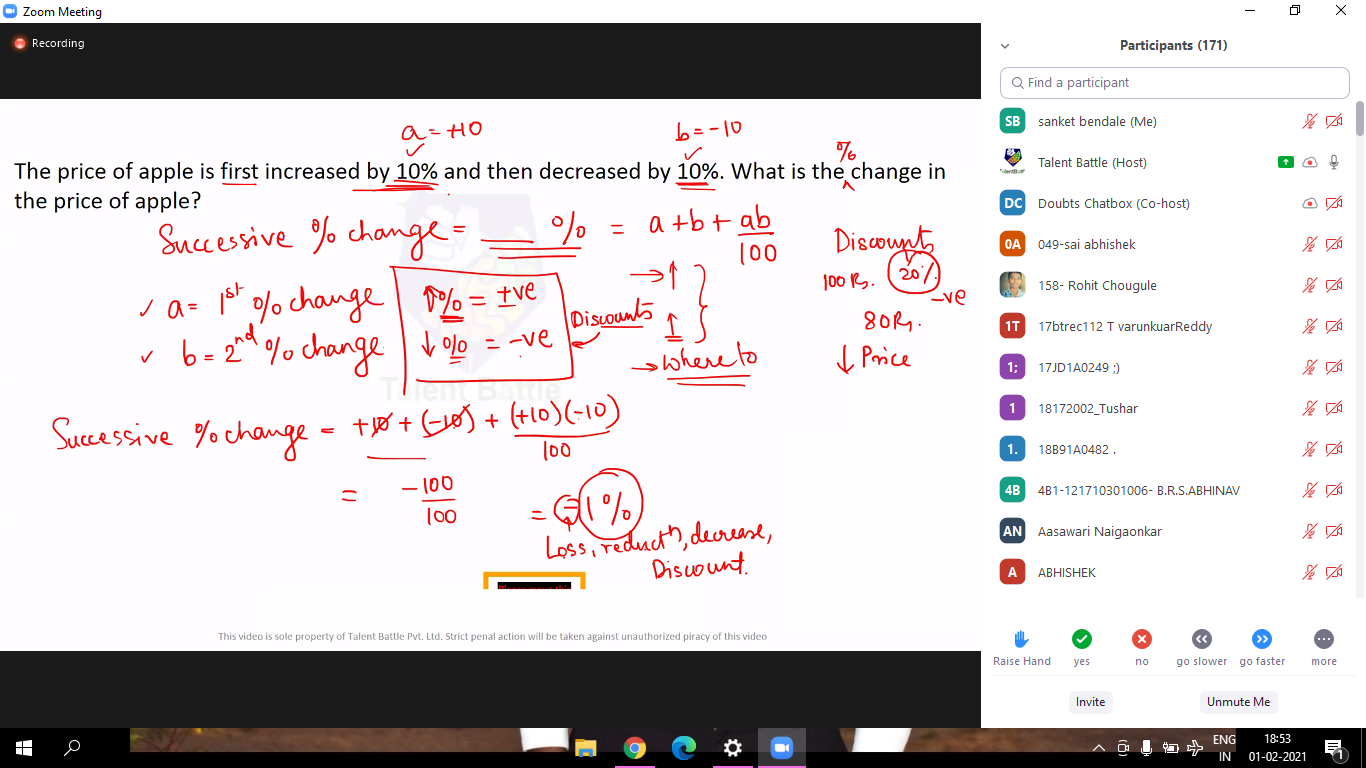 Zoom Meeting
Recording
a = +10
b = -10
%
The price of apple is first increased by 10% and then decreased by 10%. What is the change in
the price of apple?
Successive % change = ___ % = a + b + ab/100
✓ a = 1st % change
✓ b = 2nd % change
↑% = +ve
↓% = -ve
Discounts
→ ↑
↑
→ Where to
Discounts
100 Rs. 20%
-ve
80 Rs.
↓ Price
Talent Battle
Successive % change = +10 + (-10) + (+10)(-10)/100
= -100/100 = -1%
Loss, reductn, decrease,
Discount.
This video is sole property of Talent Battle Pvt. Ltd. Strict penal action will be taken against unauthorized piracy of this video
Participants (171)
Find a participant
SB sanket bendale (Me)
Talent Battle (Host)
DC Doubts Chatbox (Co-host)
0A 049-sai abhishek
158- Rohit Chougule
1T 17btrec112 T varunkuarReddy
1; 17JD1A0249 ;)
1 18172002_Tushar
1. 18B91A0482 .
4B 4B1-121710301006- B.R.S.ABHINAV
AN Aasawari Naigaonkar
A ABHISHEK
Raise Hand yes no go slower go faster more
Invite Unmute Me
ENG
IN
18:53
01-02-2021
1